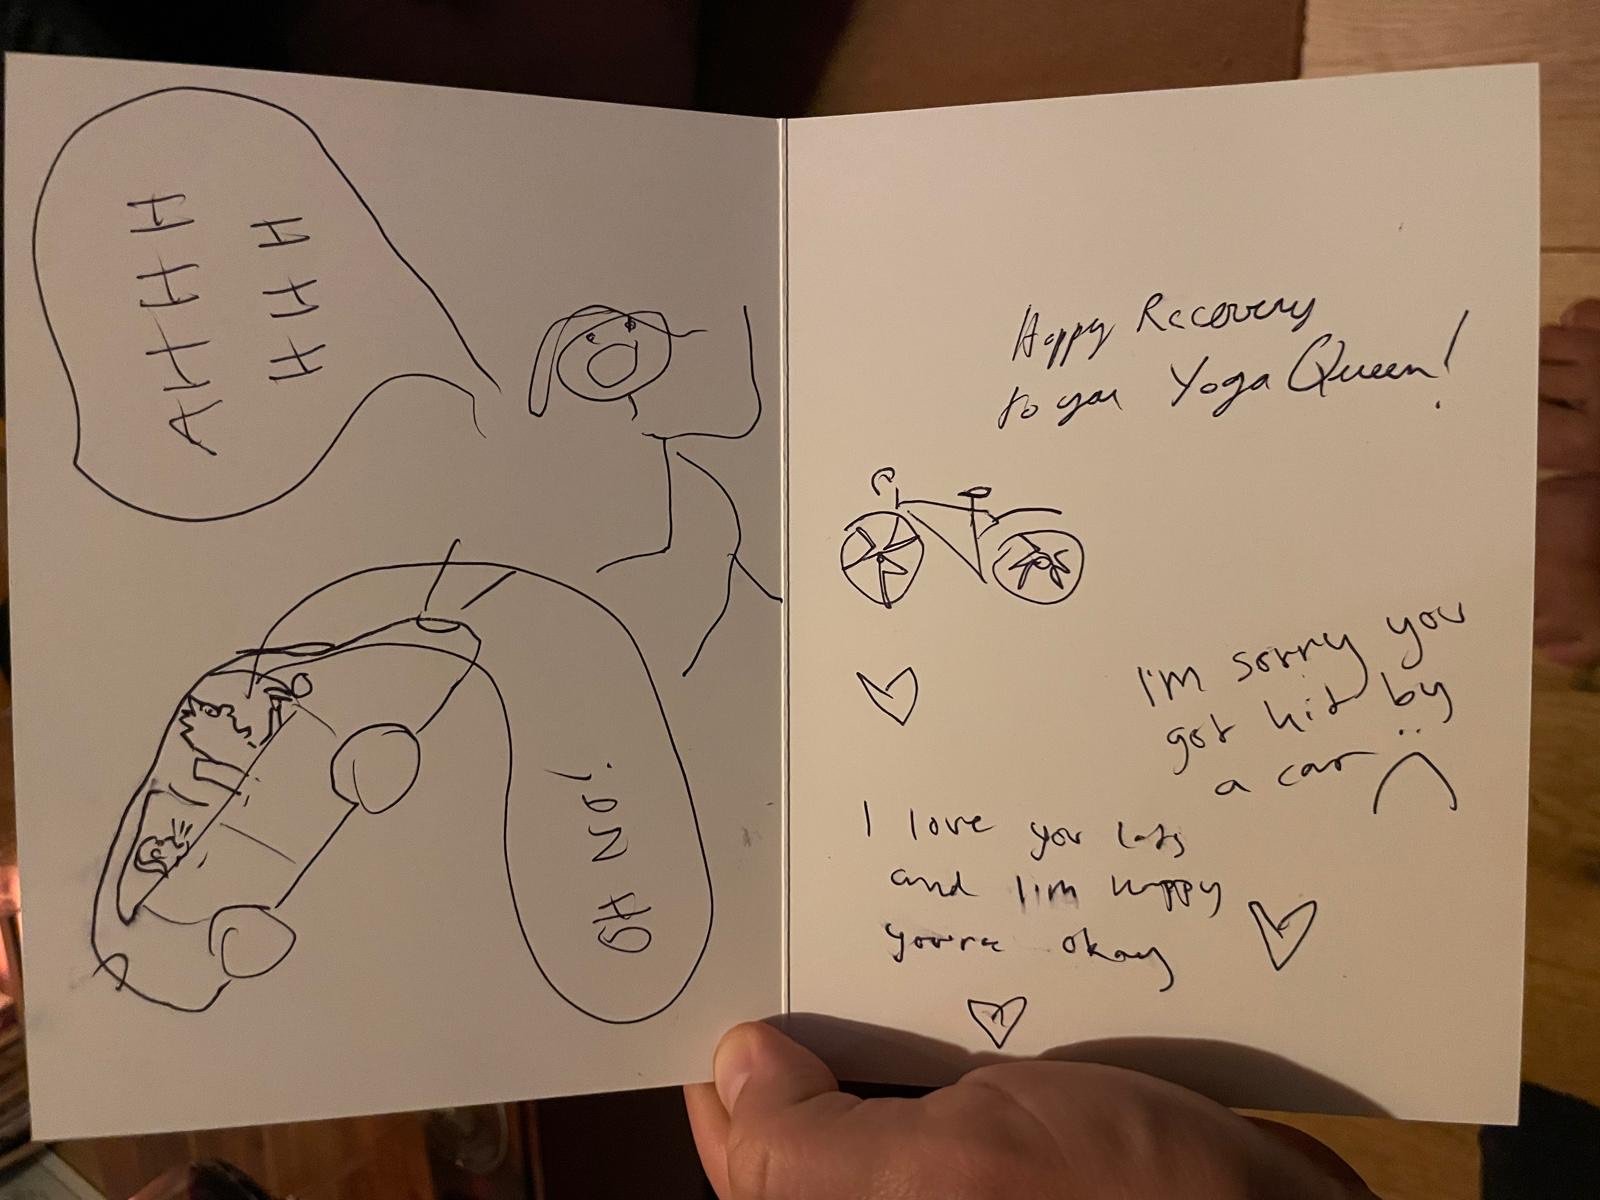 AHHH
HHH
OH NO!
Happy Recovery
to you Yoga Queen!
I'm sorry you
got hit by
a car
I love you lots
and I'm happy
you're okay